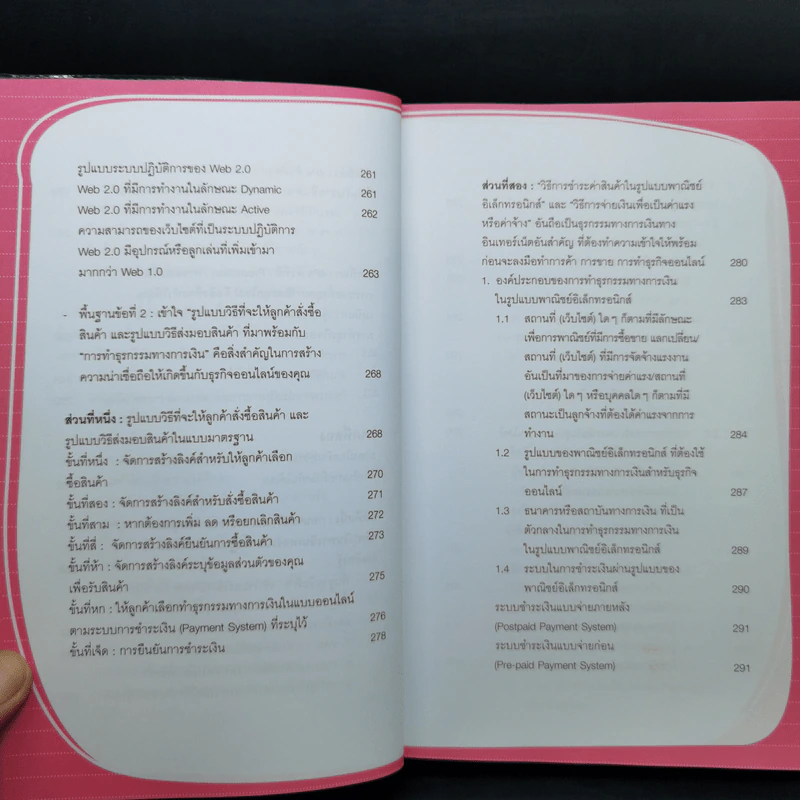 รูปแบบระบบปฏิบัติการของ Web 2.0 261
Web 2.0 ที่มีการทำงานในลักษณะ Dynamic 261
Web 2.0 ที่มีการทำงานในลักษณะ Active 262
ความสามารถของเว็บไซต์ที่เป็นระบบปฏิบัติการ
Web 2.0 มีอุปกรณ์หรือลูกเล่นที่เพิ่มเข้ามา
มากกว่า Web 1.0 263
- พื้นฐานข้อที่ 2 : เข้าใจ "รูปแบบวิธีที่จะให้ลูกค้าสั่งซื้อ
สินค้า และรูปแบบวิธีส่งมอบสินค้า ที่มาพร้อมกับ
"การทำธุรกรรมทางการเงิน" คือสิ่งสำคัญในการสร้าง
ความน่าเชื่อถือให้เกิดขึ้นกับธุรกิจออนไลน์ของคุณ 268
ส่วนที่หนึ่ง : รูปแบบวิธีที่จะให้ลูกค้าสั่งซื้อสินค้า และ
รูปแบบวิธีส่งมอบสินค้าในแบบมาตรฐาน 268
ขั้นที่หนึ่ง : จัดการสร้างลิงค์สำหรับให้ลูกค้าเลือก
ซื้อสินค้า 270
ขั้นที่สอง : จัดการสร้างลิงค์สำหรับสั่งซื้อสินค้า 271
ขั้นที่สาม : หากต้องการเพิ่ม ลด หรือยกเลิกสินค้า 272
ขั้นที่สี่ : จัดการสร้างลิงค์ยืนยันการซื้อสินค้า 273
ขั้นที่ห้า : จัดการสร้างลิงค์ระบุข้อมูลส่วนตัวของคุณ
เพื่อรับสินค้า 275
ขั้นที่หก : ให้ลูกค้าเลือกทำธุรกรรมทางการเงินในแบบออนไลน์
ตามระบบการชำระเงิน (Payment System) ที่ระบุไว้ 276
ขั้นที่เจ็ด : การยืนยันการชำระเงิน 278
ส่วนที่สอง : "วิธีการชำระค่าสินค้าในรูปแบบพาณิชย์
อิเล็กทรอนิกส์" และ "วิธีการจ่ายเงินเพื่อเป็นค่าแรง
หรือค่าจ้าง" อันถือเป็นธุรกรรมการเงินทาง
อินเทอร์เน็ตอันสำคัญ ที่ต้องทำความเข้าใจให้พร้อม
ก่อนจะลงมือทำการค้า การขาย การทำธุรกิจออนไลน์ 280
1. องค์ประกอบของการทำธุรกรรมทางการเงิน
ในรูปแบบพาณิชย์อิเล็กทรอนิกส์ 283
1.1 สถานที่ (เว็บไซต์) ใดๆ ก็ตามที่มีลักษณะ
เพื่อการพาณิชย์ที่มีการซื้อขาย แลกเปลี่ยน/
สถานที่ (เว็บไซต์) ที่มีการจัดจ้างแรงงาน
อันเป็นที่มาของการจ่ายค่าแรง/สถานที่
(เว็บไซต์) ใดๆ หรือบุคคลใดๆ ก็ตามที่มี
สถานะเป็นลูกจ้างที่ต้องได้ค่าแรงจากการ
ทำงาน 284
1.2 รูปแบบของพาณิชย์อิเล็กทรอนิกส์ ที่ต้องใช้
ในการทำธุรกรรมทางการเงินสำหรับธุรกิจ
ออนไลน์ 287
1.3 ธนาคารหรือสถาบันทางการเงิน ที่เป็น
ตัวกลางในการทำธุรกรรมทางการเงิน
ในรูปแบบพาณิชย์อิเล็กทรอนิกส์ 289
1.4 ระบบในการชำระเงินผ่านรูปแบบของ
พาณิชย์อิเล็กทรอนิกส์ 290
ระบบชำระเงินแบบจ่ายภายหลัง
(Postpaid Payment System) 291
ระบบชำระเงินแบบจ่ายก่อน
(Pre-paid Payment System) 291